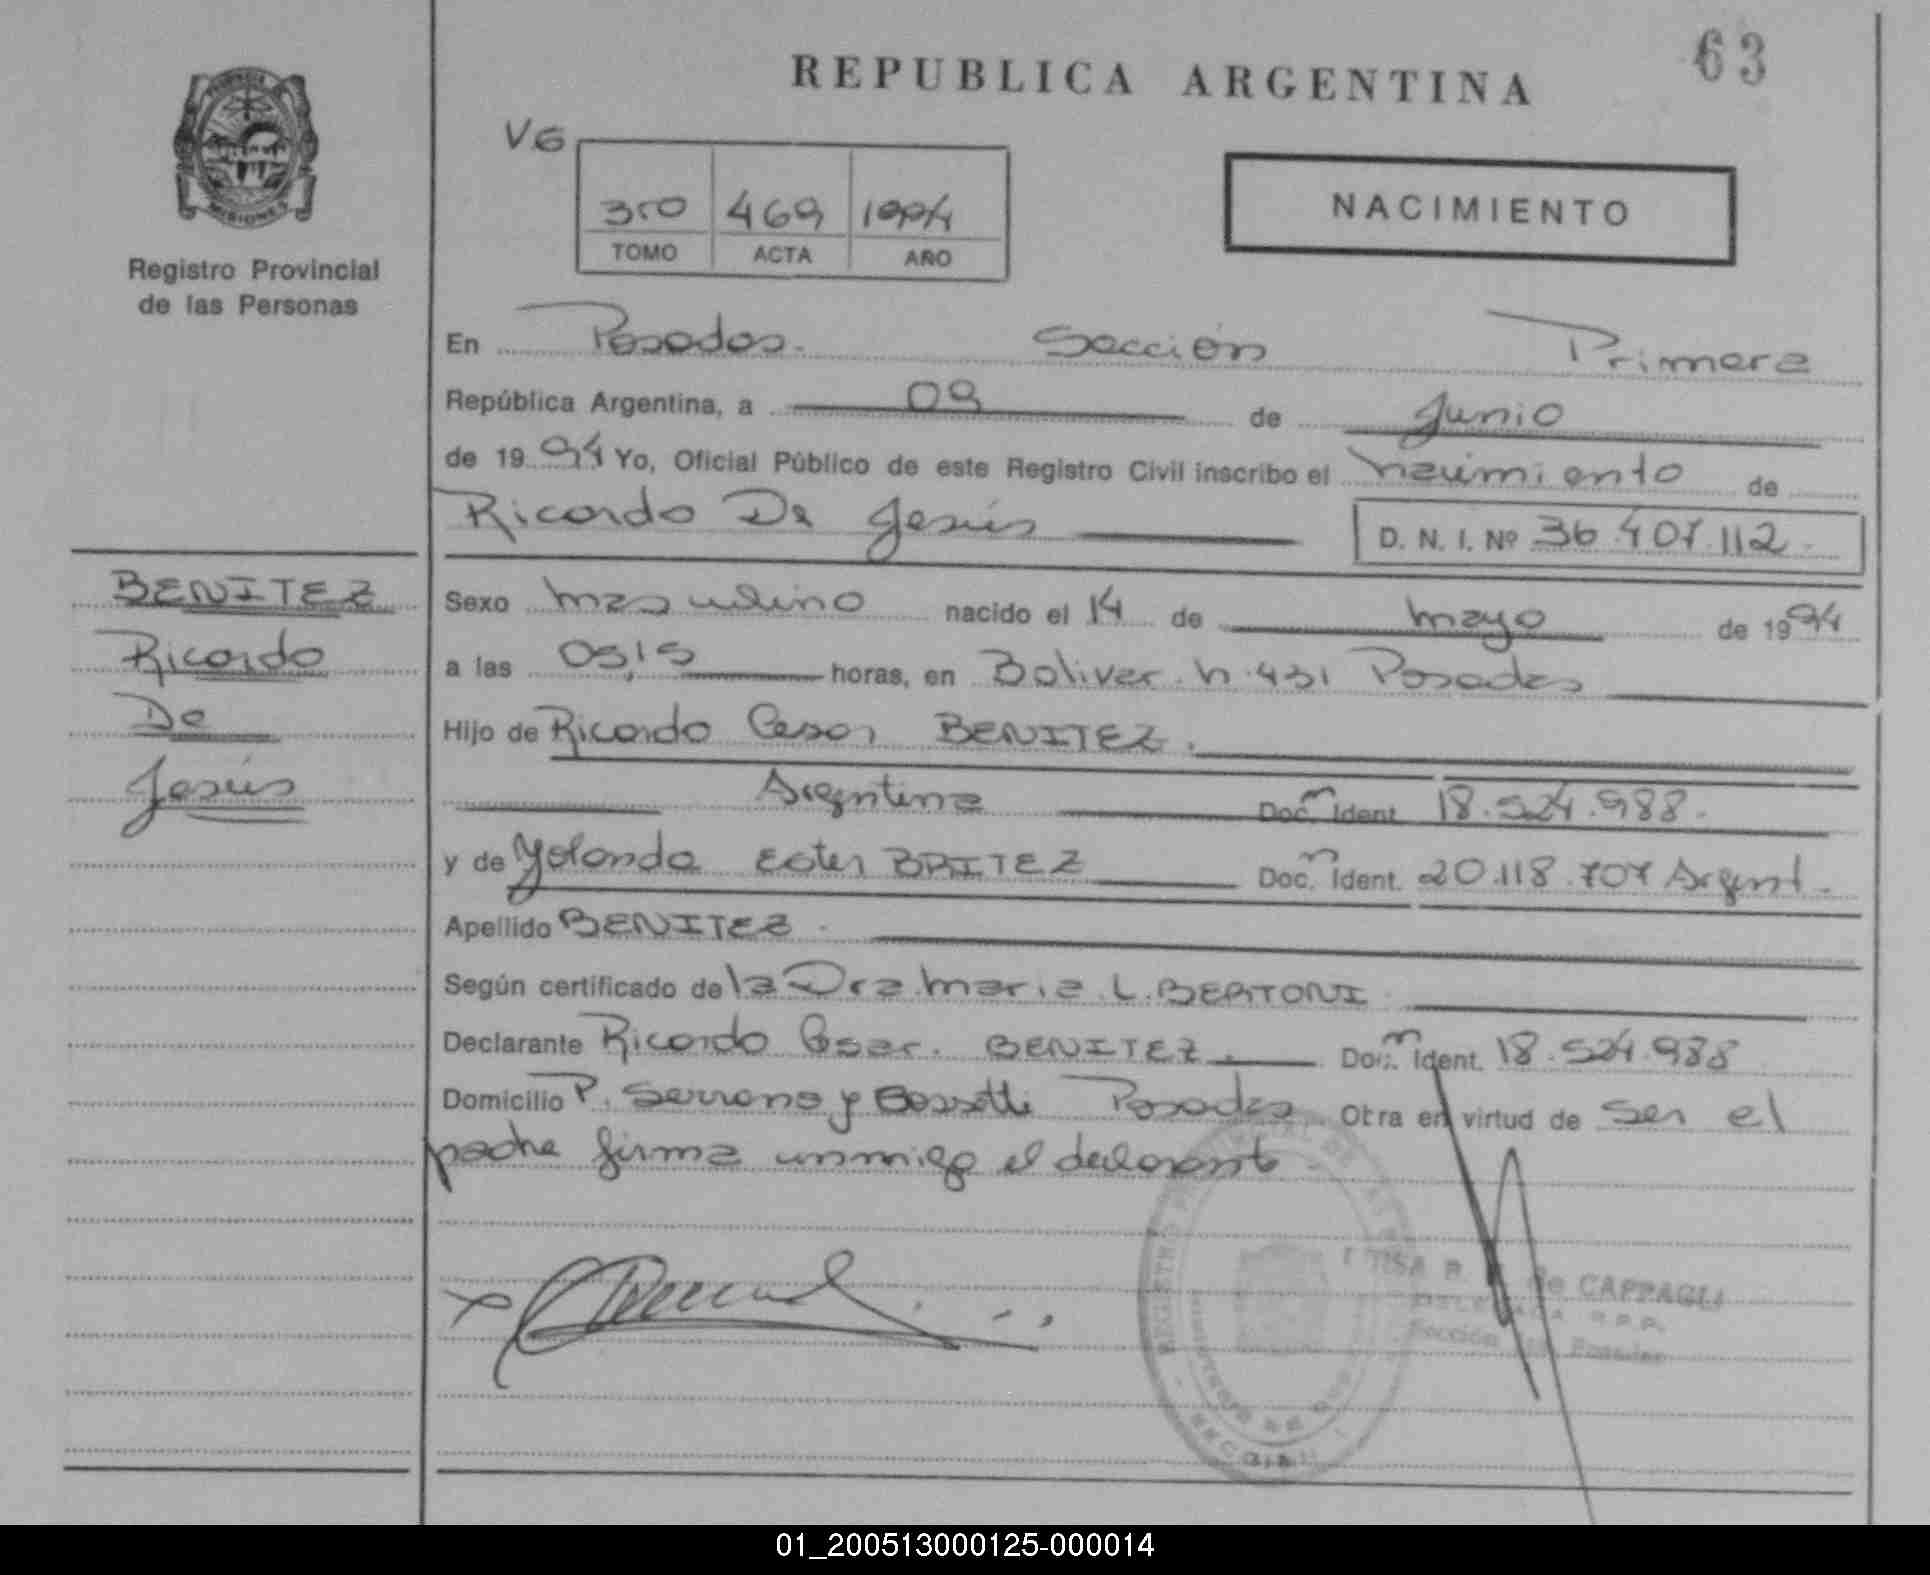 63
REPUBLICA ARGENTINA
PROVINCIA
MISIONES
Registro Provincial
de las Personas
V6
350 469 1994
TOMO ACTA AÑO
NACIMIENTO
En Posadas. Sección Primera
República Argentina, a 09 de Junio
de 1994 Yo, Oficial Público de este Registro Civil inscribo el nacimiento de
Ricardo De Jesús D. N. I. Nº 36.407.112.
BENITEZ
Ricardo
De
Jesús
Sexo masculino nacido el 14 de mayo de 1994
a las 05,15 horas, en Bolivar. n. 431 Posadas
Hijo de Ricardo Cesar BENITEZ.
Argentina Doc. Ident. 18.524.988.
y de Yolanda Ester BRITEZ Doc. Ident. 20.118.707 Argent.
Apellido BENITEZ.
Según certificado de la Dra Maria L. BERTONI
Declarante Ricardo Cesar. BENITEZ. Doc. Ident. 18.524.988
Domicilio P. Serrano y Bossetti Posadas Otra en virtud de ser el
padre firma conmigo el declarante.
de CAPPAGLI
DELEGADA R.P.P.
Sección Posadas
01_200513000125-000014